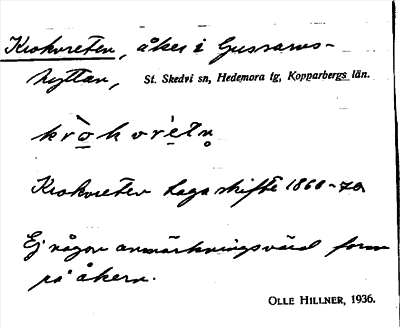 Krokvreten, åker i Gussarvs-
hyttan, St. Skedvi sn, Hedemora tg, Kopparbergs län.
krokvretn
Krokvreten Lagaskifte 1860-70
Ej någon anmärkningsvärd form
på åkern.
OLLE HILLNER, 1936.